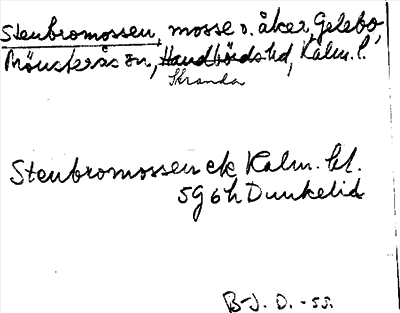 Stenbromossen, mosse o. åker, Gelebo,
Mönsterås sn, Handbörds hd, Kalm. l.
Stranda
Stenbromossen ek Kalm. bl.
5G 6h Dunkelid
B-J. D. -55.